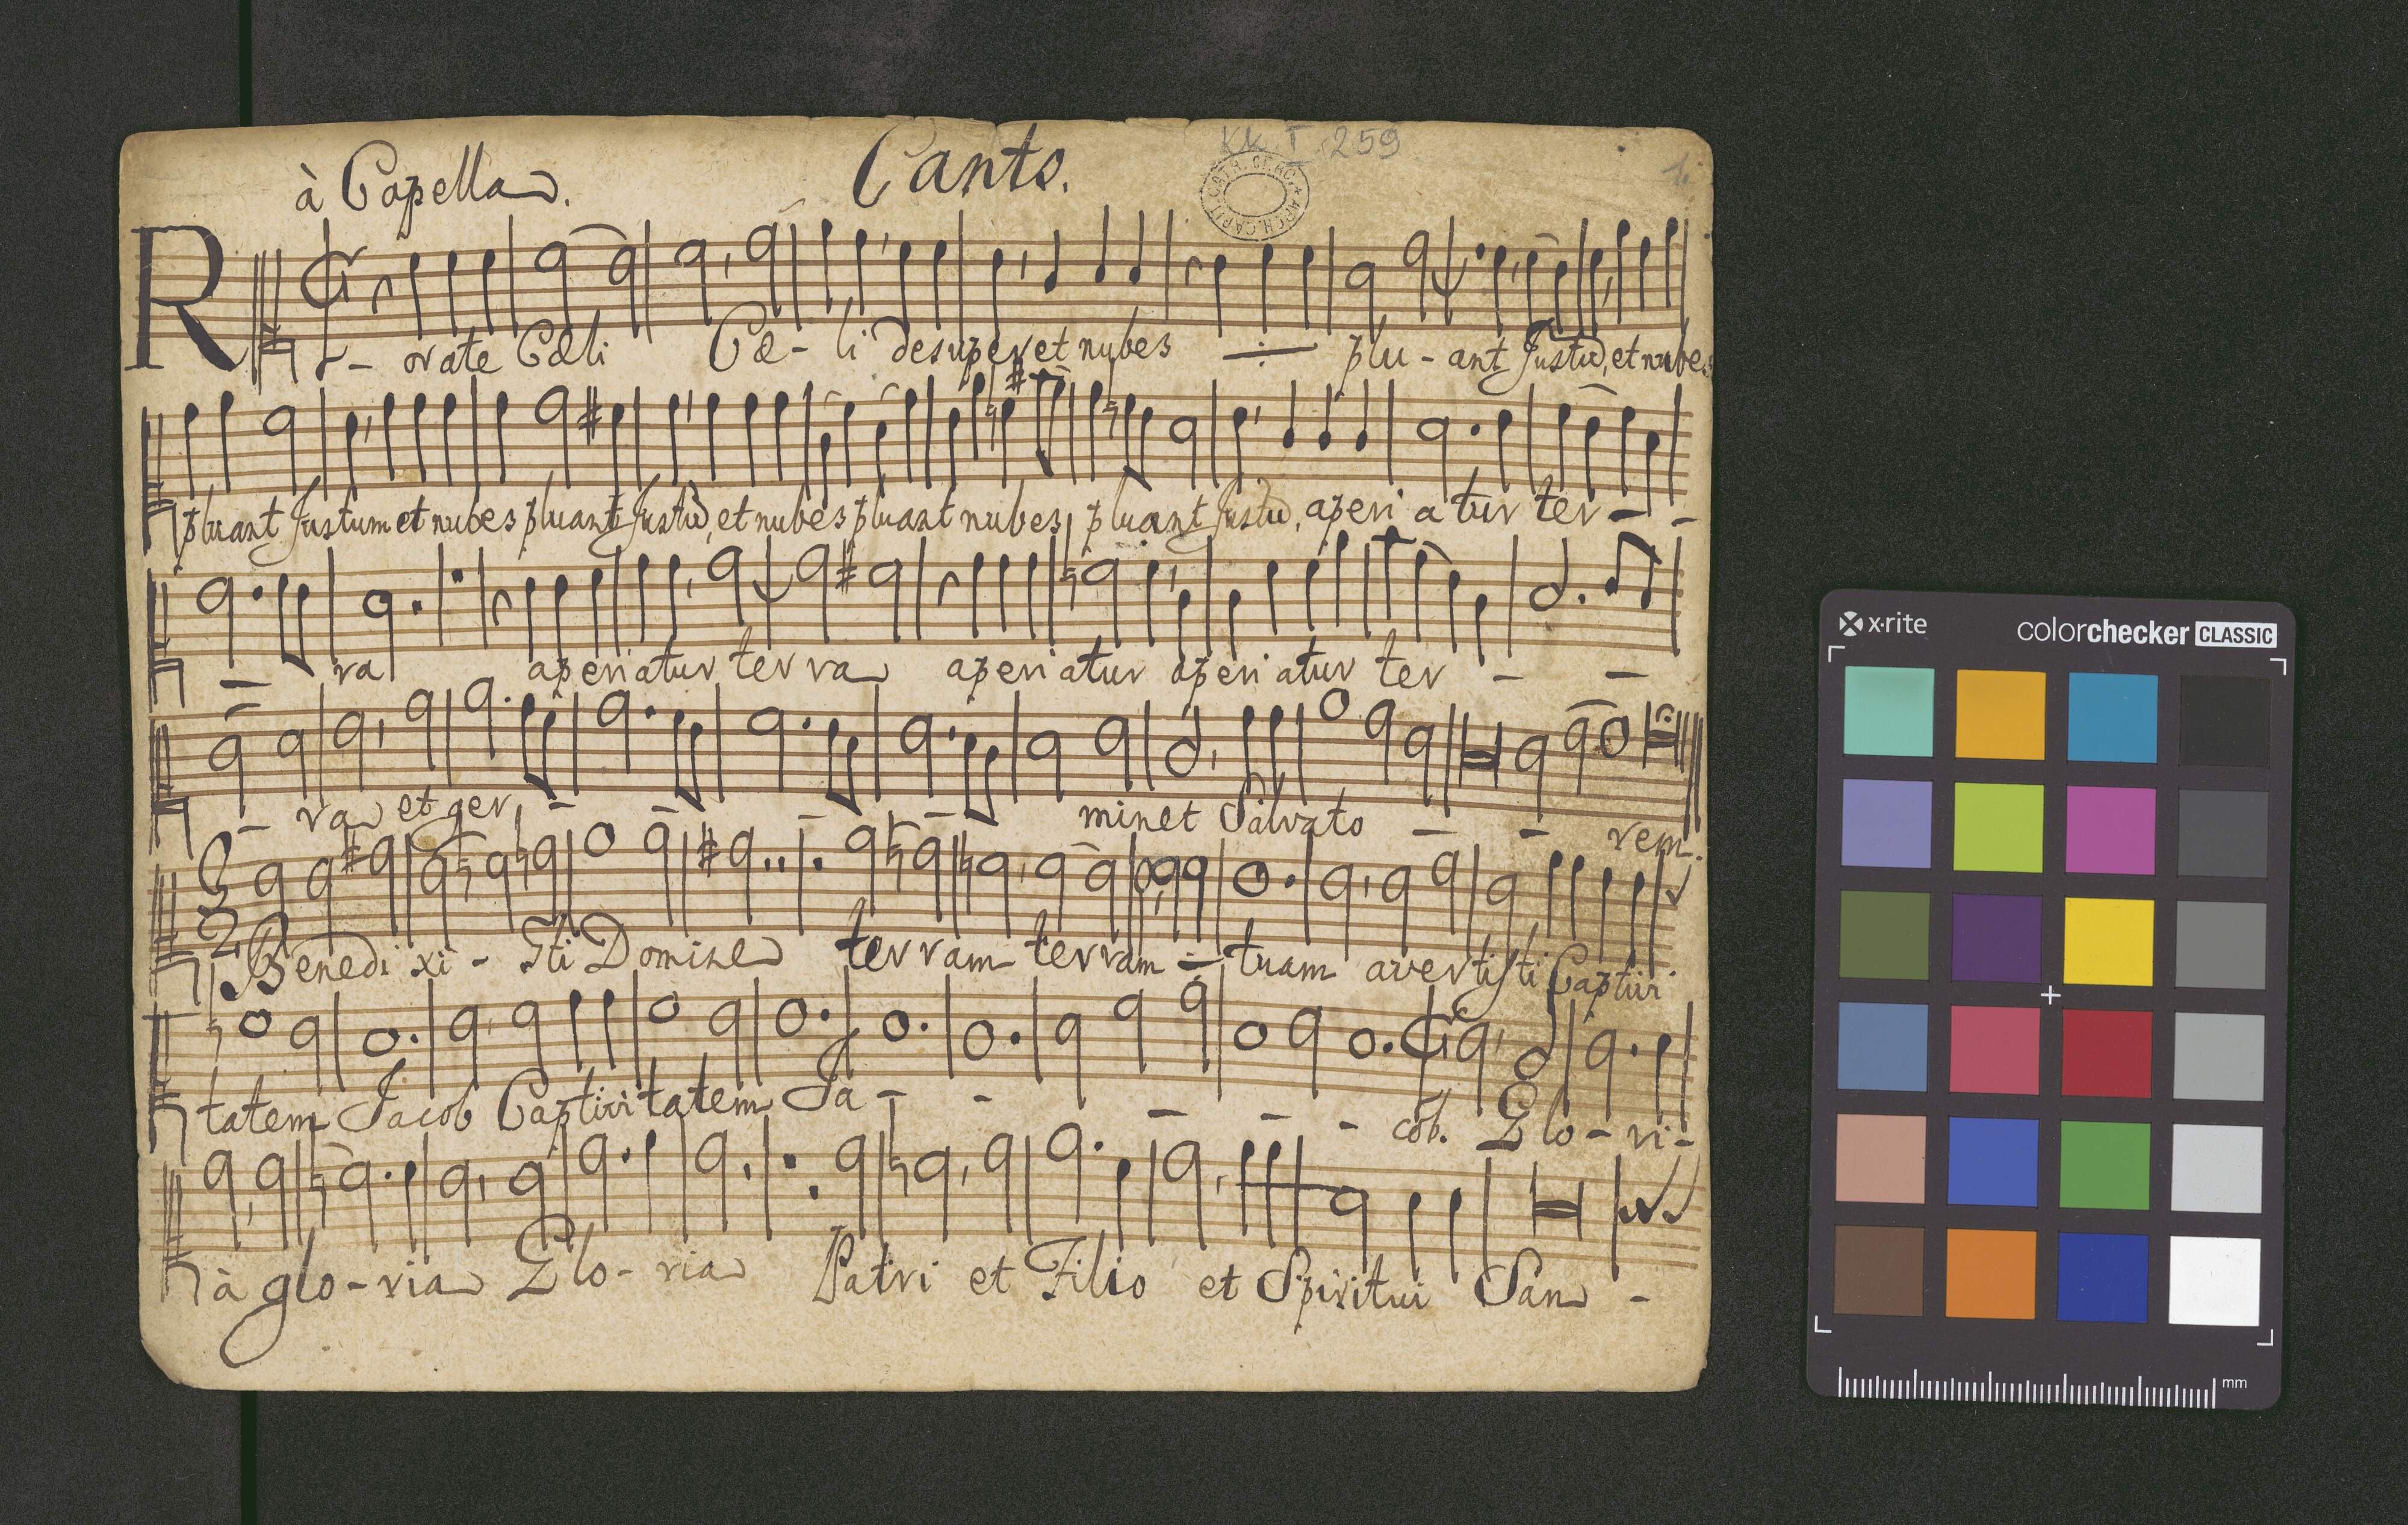 KK. I. 259
1.
à Capella.
Cants.
R
- orate Cæli Cæ - li desuper et nubes plu - ant Justū, et nubes
pluant Justum et nubes pluant Justū, et nubes pluant nubes, pluant Justū, aperi a tur ter - -
- ra aperiatur terra aperiatur aperi atur ter - -
- ra et ger - - - - minet Salvato - - rem.
3
2
Benedi xi - sti Domine terram terram - tuam avertisti Captivi
tatem Jacob Captivitatem Ja - - - - - cob. Glo - ri -
à glo - ria Glo - ria Patri et Filio et Spiritui San -
x·rite
colorchecker CLASSIC
mm